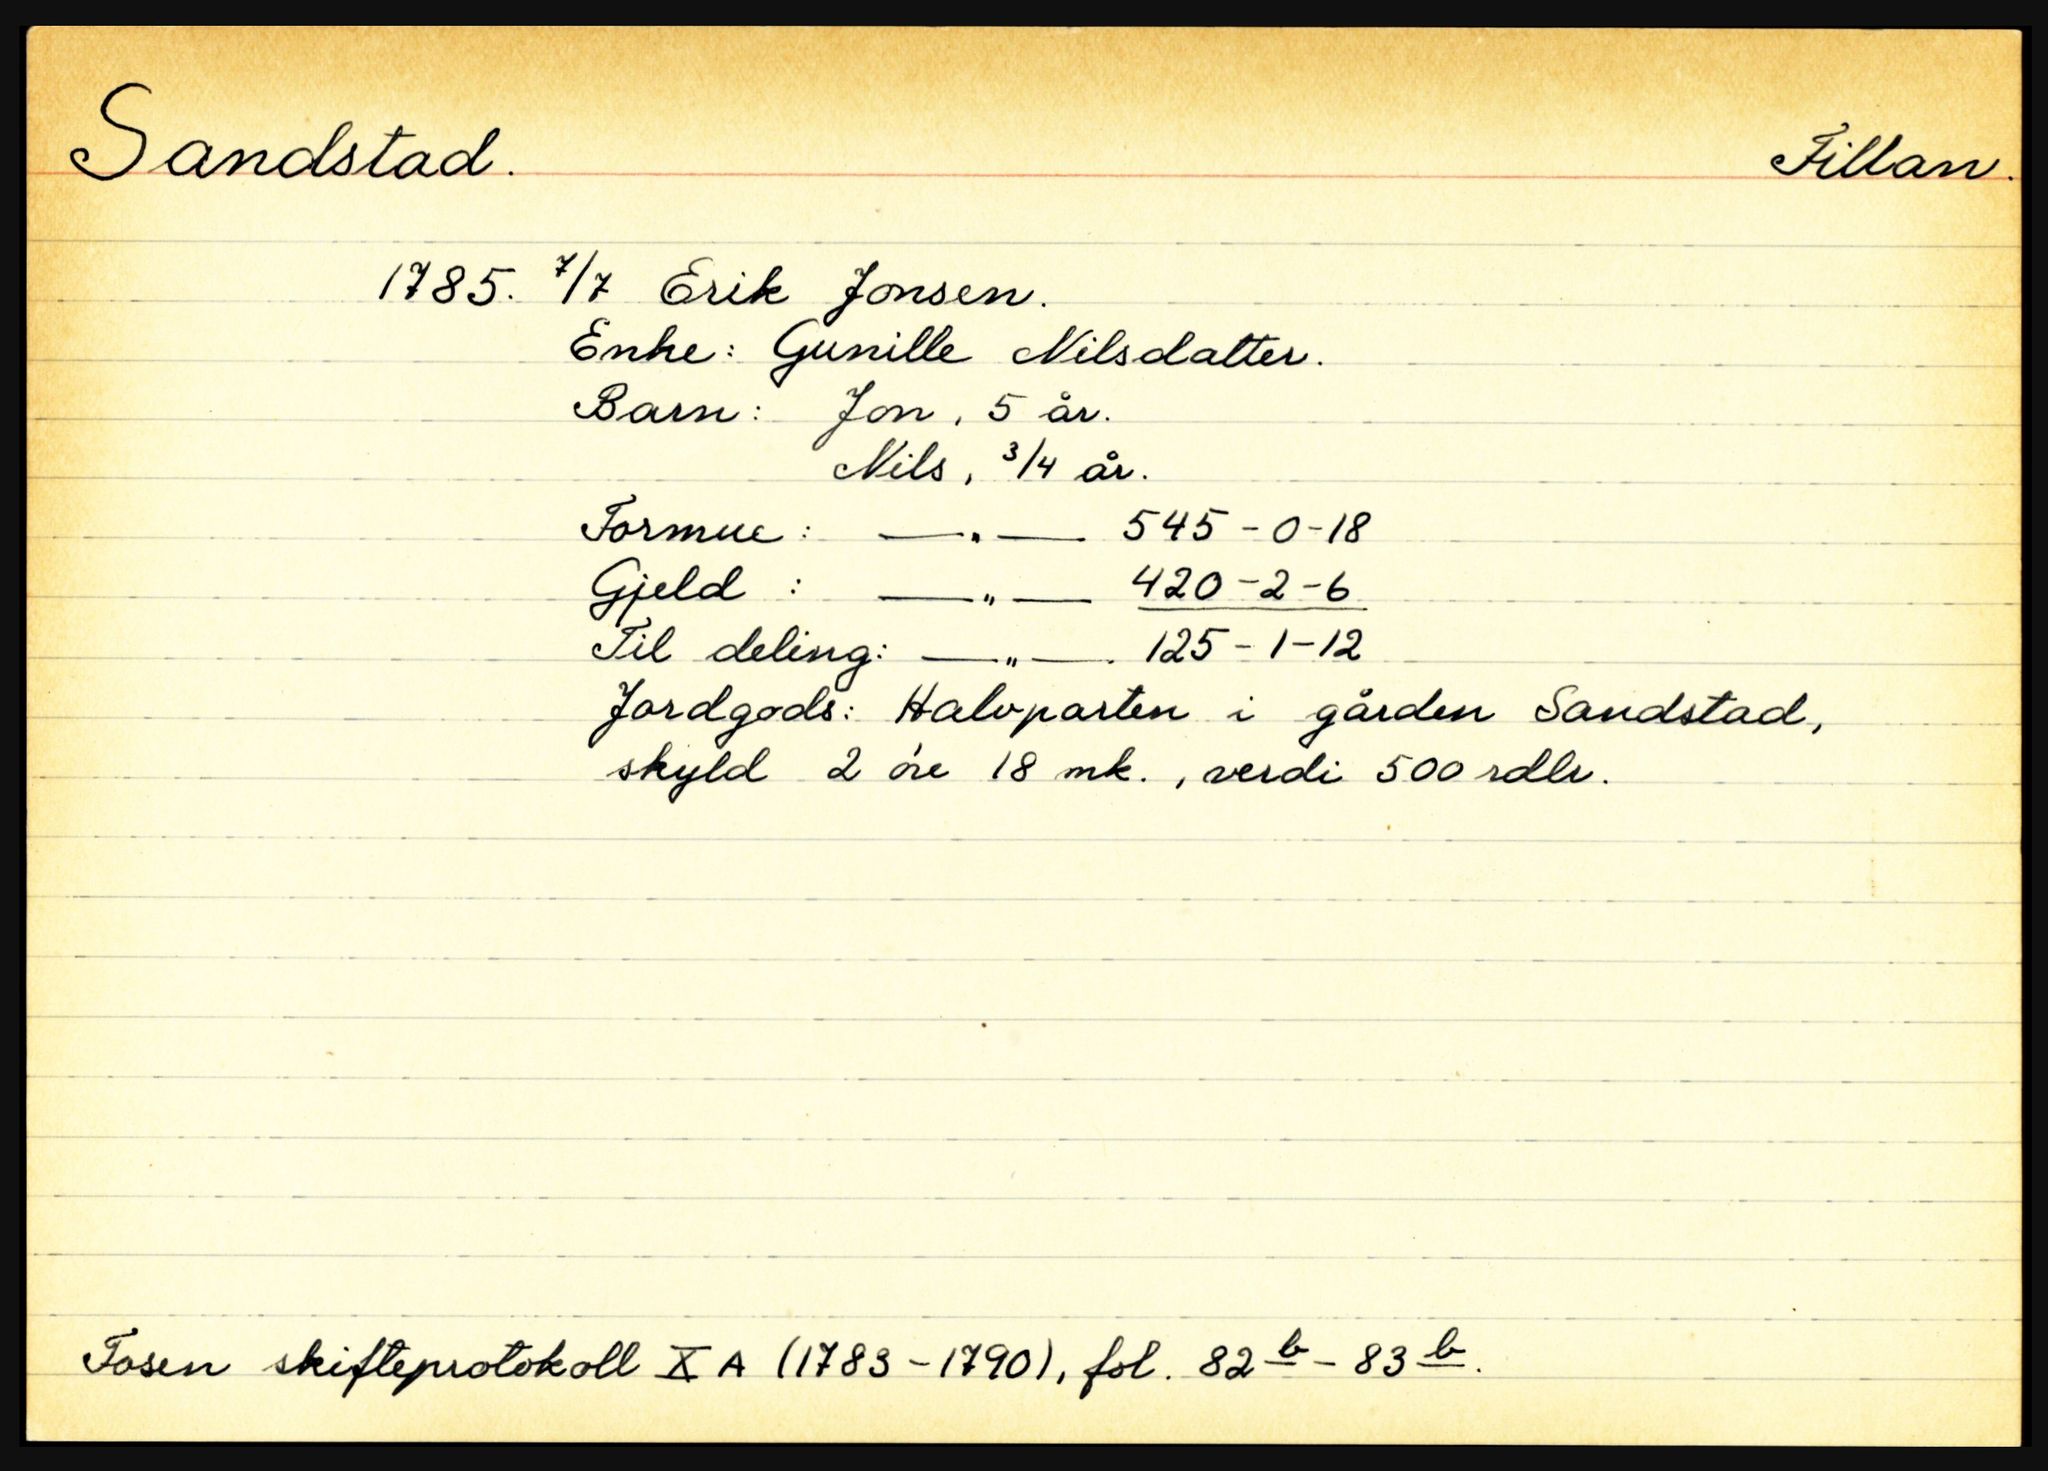 Sandstad. Fillan.
1785. 7/7 Erik Jonsen.
Enke: Gunille Nilsdatter.
Barn: Jon, 5 år.
Nils, 3/4 år.
Formue: —"— 545-0-18
Gjeld : —"— 420-2-6
Til deling: —"—. 125-1-12
Jordgods: Halvparten i gården Sandstad,
skyld 2 öre 18 mk., verdi 500 rdlr.
Fosen skifteprotokoll X A (1783-1790), fol. 82b-83b.